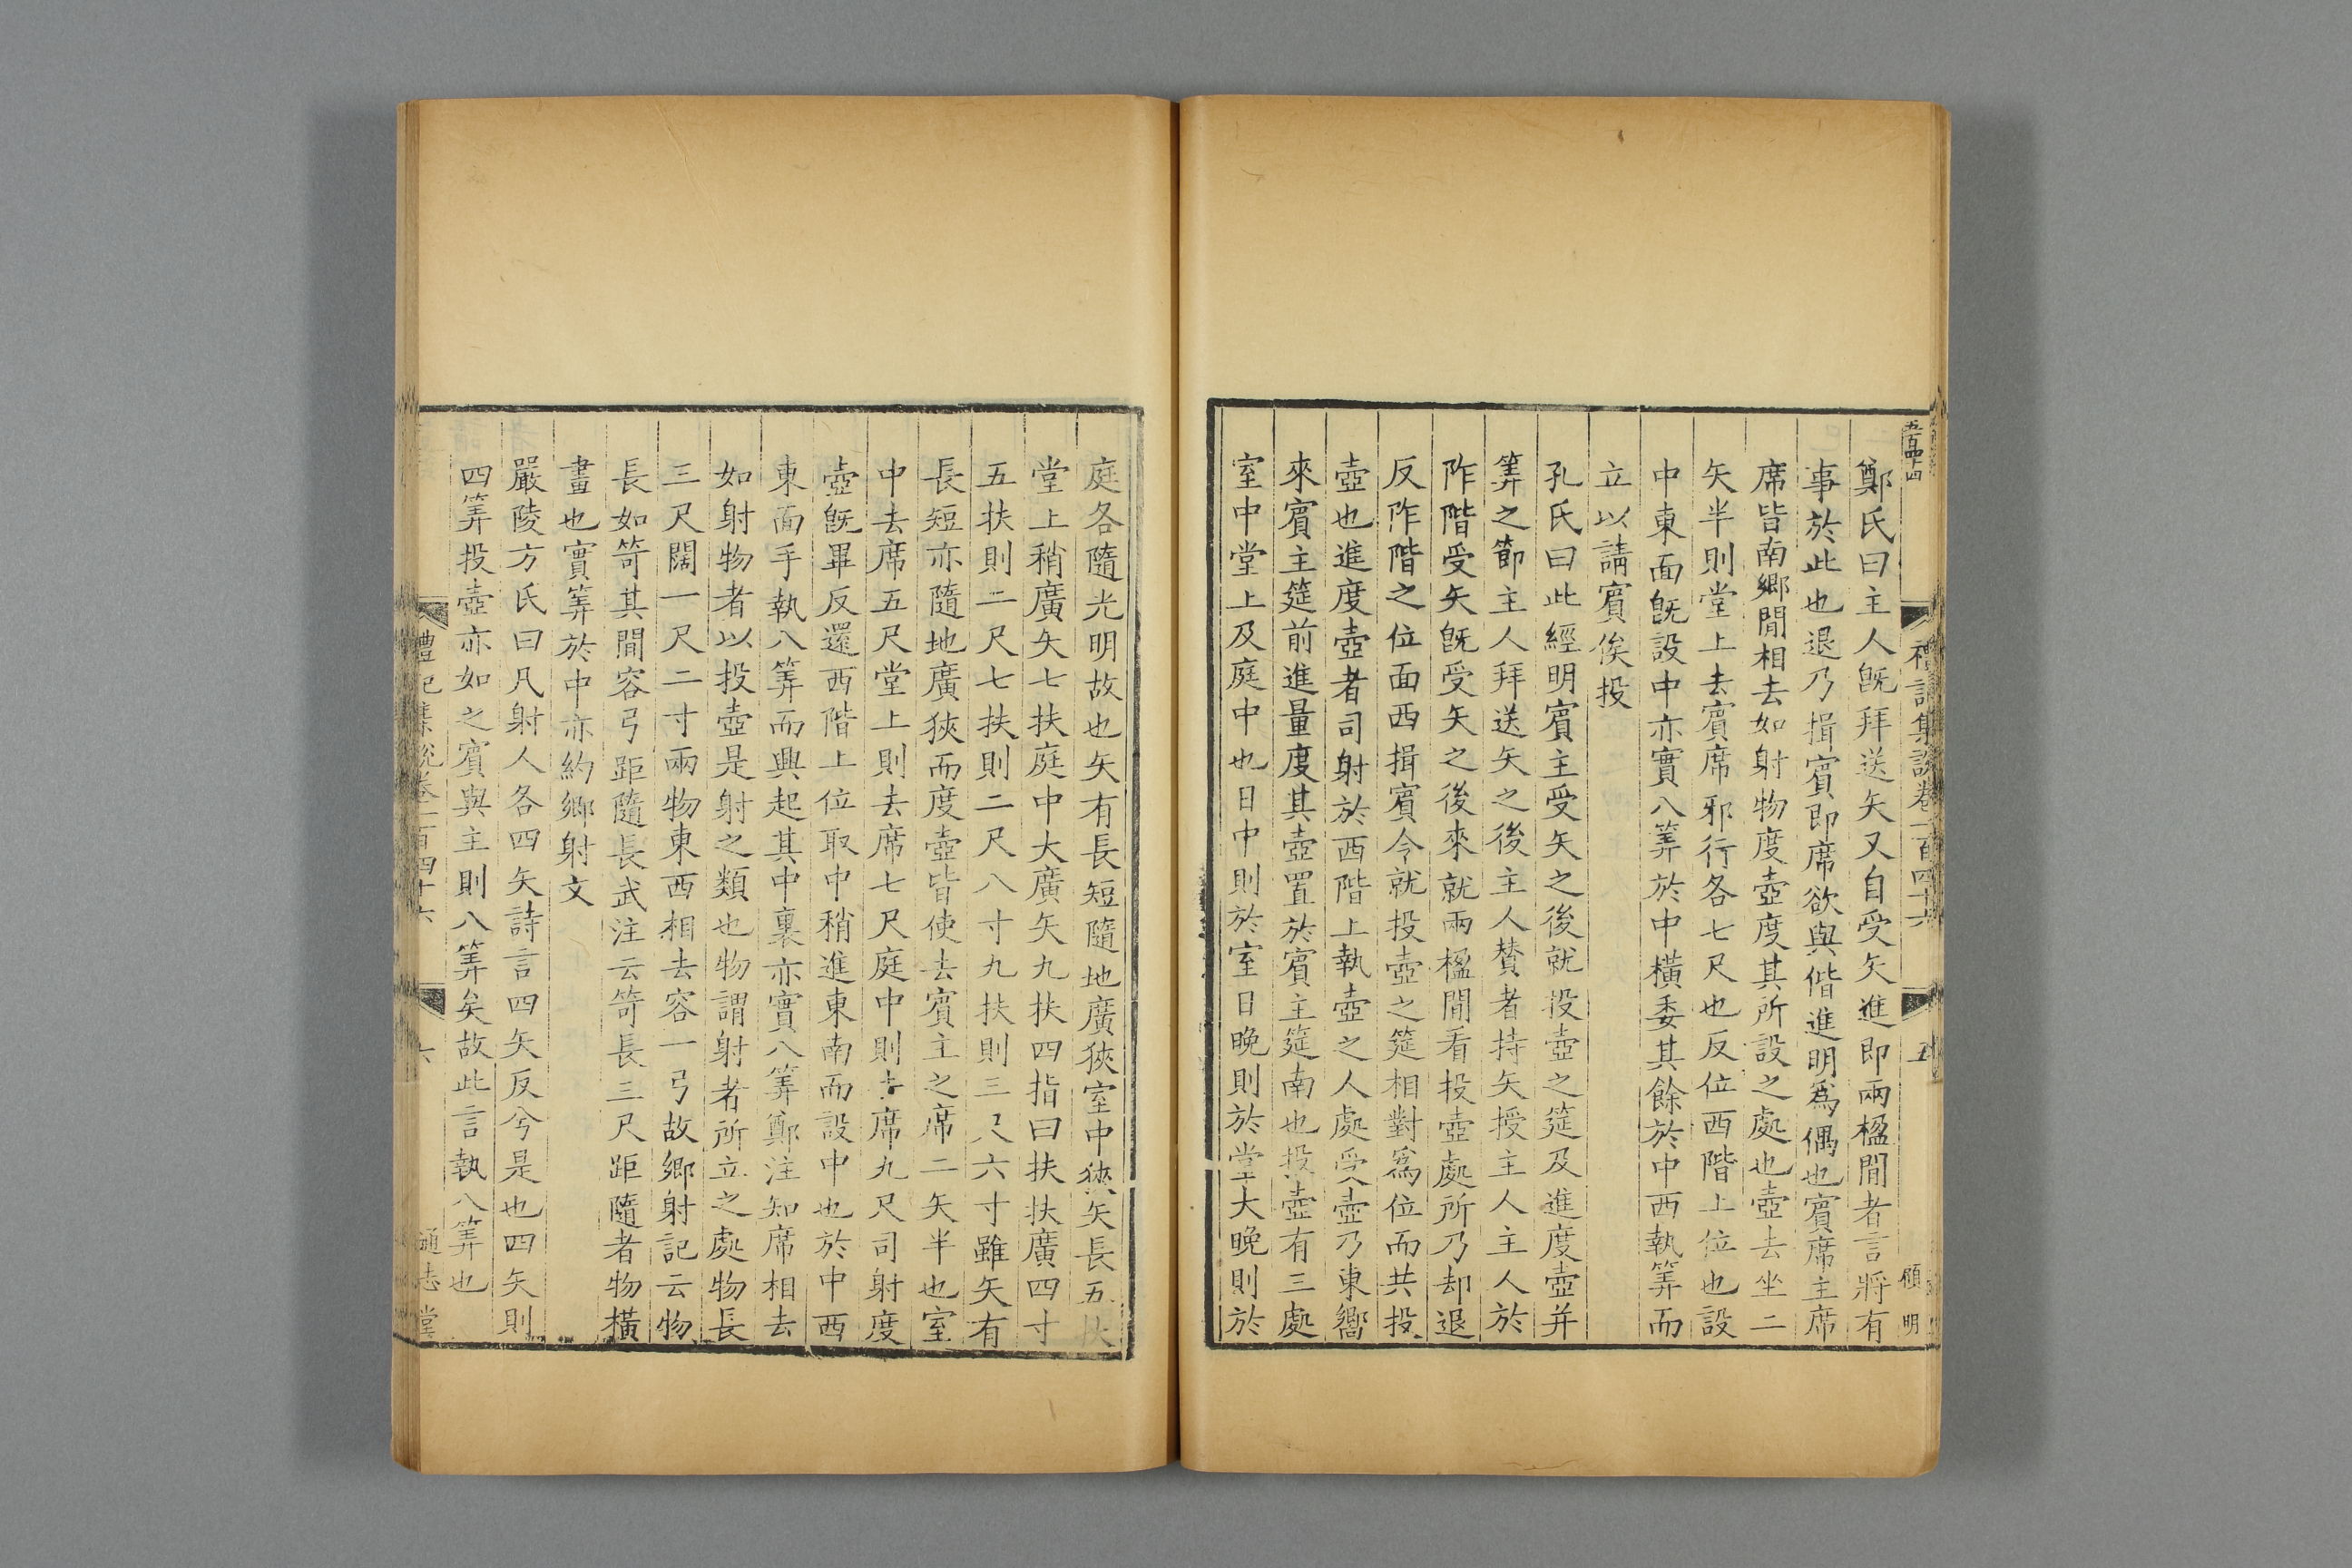 禮記集說卷一百四十六
五
明
鄭氏曰主人旣拜送矢又自受矢進即兩楹間者言將有
事於此也退乃揖賓即席欲與偕進明爲偶也賓席主席
席皆南鄉間相去如射物度壺度其所設之處也壺去坐二
矢半則堂上去賓席邪行各七尺也反位西階上位也設
中東面旣設中亦實八筭於中橫委其餘於中西執筭而
立以請賓俟投
孔氏曰此經明賓主受矢之後就投壺之筵及進度壺并
筭之節主人拜送矢之後主人賛者持矢授主人主人於
阼階受矢旣受矢之後來就兩楹間看投壺處所乃却退
反阼階之位面西揖賓令就投壺之筵相對爲位而共投
壺也進度壺者司射於西階上執壺之人處受壺乃東嚮
來賓主筵前進量度其壺置於賓主筵南也投壺有三處
室中堂上及庭中也日中則於室日晚則於堂大晚則於
庭各隨光明故也矢有長短隨地廣狹室中狹矢長五扶
堂上稍廣矢七扶庭中大廣矢九扶四指曰扶扶廣四寸
五扶則二尺七扶則二尺八寸九扶則三尺六寸雖矢有
長短亦隨地廣狹而度壺皆使去賓主之席二矢半也室
中去席五尺堂上則去席七尺庭中則去席九尺司射度
壺旣畢反還西階上位取中稍進東南而設中也於中西
東面手執八筭而興起其中裏亦實八筭鄭注知席相去
如射物者以投壺是射之類也物謂射者所立之處物長
三尺闊一尺二寸兩物東西相去容一弓故鄉射記云物
長如笴其間容弓距隨長武注云笴長三尺距隨者物橫
畫也實筭於中亦約鄉射文
嚴陵方氏曰凡射人各四矢詩言四矢反兮是也四矢則
四筭投壺亦如之賓與主則八筭矣故此言執八筭也
禮記集說卷一百四十六
六
通志堂